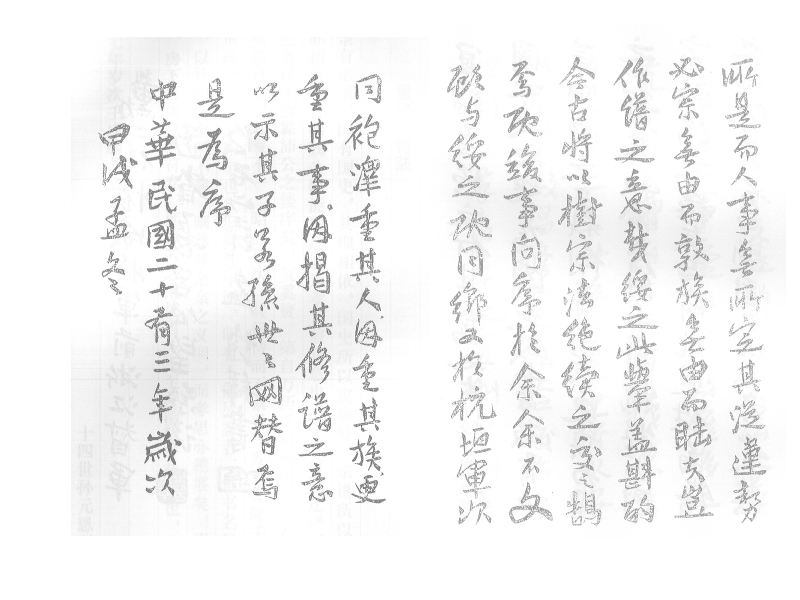 所是而人事无所定其從違勢
必宗無由而敦族無由而睦夫豈
作譜之意哉綏之此舉蓋斟酌
今古將以樹宗法絕續之交之鵠
焉既竣事问序於余余不文
顧与綏之既同鄉又於杭垣軍次
同袍澤重其人因重其族更
重其事因揭其修譜之意
以示其子若孫世〻罔替焉
是為序
中華民國二十有三年歲次
甲戌孟冬